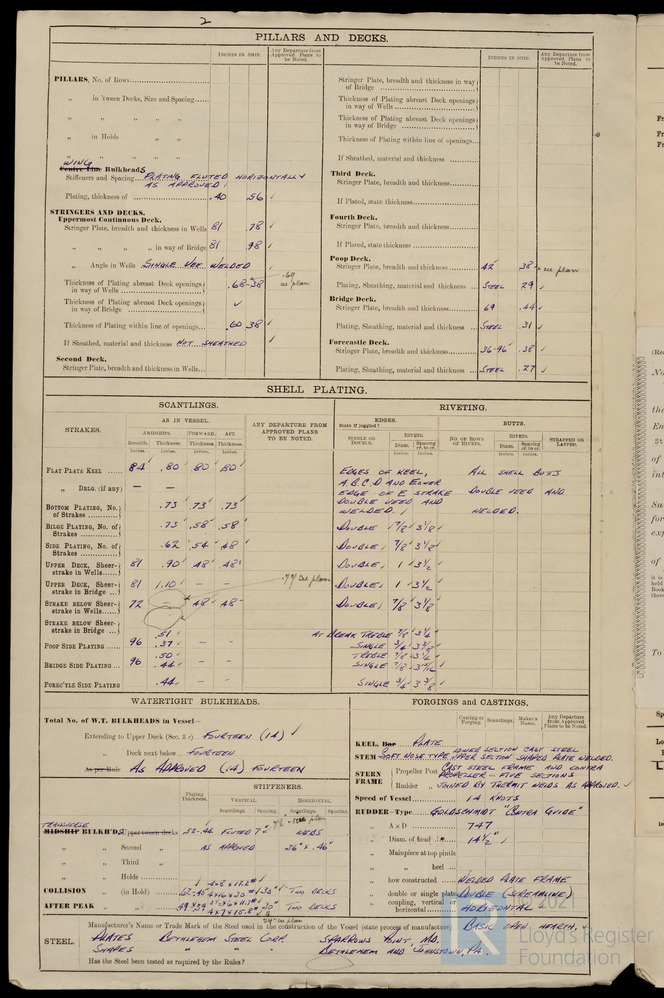 2
PILLARS AND DECKS.
INCHES IN SHIP.
Any Departure from Approved Plans to be Noted.
PILLARS, No. of Rows
„ in 'tween Decks, Size and Spacing
„ „ „ „
„ in Holds „
„ „ „ „
WING
Centre Line Bulkheads
Stiffeners and Spacing PLATING FLUTED HORIZONTALLY
AS APPROVED
Plating, thickness of .40 .56 ✓
STRINGERS AND DECKS.
Uppermost Continuous Deck.
Stringer Plate, breadth and thickness in Wells 81 .78 ✓
„ „ „ „ in way of Bridge 81 .98 ✓
„ Angle in Wells SINGLE VEE WELDED
Thickness of Plating abreast Deck openings in way of Wells .68-.38 as plan
Thickness of Plating abreast Deck openings in way of Bridge ✓
Thickness of Plating within line of openings .60 .38 ✓
If Sheathed, material and thickness NOT SHEATHED
Second Deck.
Stringer Plate, breadth and thickness in Wells
INCHES IN SHIP.
Any Departure from Approved Plans to be Noted.
Stringer Plate, breadth and thickness in way of Bridge
Thickness of Plating abreast Deck openings in way of Wells
Thickness of Plating abreast Deck openings in way of Bridge
Thickness of Plating within line of openings
If Sheathed, material and thickness
Third Deck.
Stringer Plate, breadth and thickness
If Plated, state thickness
Fourth Deck.
Stringer Plate, breadth and thickness
If Plated, state thickness
Poop Deck.
Stringer Plate, breadth and thickness 42 .38 as plan
Plating, Sheathing, material and thickness STEEL .29 ✓
Bridge Deck.
Stringer Plate, breadth and thickness 69 .44 ✓
Plating, Sheathing, material and thickness STEEL .31 ✓
Forecastle Deck.
Stringer Plate, breadth and thickness 36-96 .38 ✓
Plating, Sheathing, material and thickness STEEL .27 ✓
SHELL PLATING.
SCANTLINGS.
STRAKES.
AS IN VESSEL.
AMIDSHIPS. FORWARD. AFT.
Breadth. Thickness. Thickness. Thickness.
Inches. Inches. Inches. Inches.
ANY DEPARTURE FROM APPROVED PLANS TO BE NOTED.
RIVETING.
EDGES.
State if joggled?
SINGLE OR DOUBLE.
RIVETS.
Diam. Spacing cr. to cr.
Inches. Inches.
BUTTS.
NO. OF ROWS OF RIVETS.
RIVETS.
Diam. Spacing cr. to cr.
Inches. Inches.
STRAPPED OR LAPPED.
FLAT PLATE KEEL 84 .80 .80 .80 EDGES OF KEEL, ALL SHELL BUTTS
„ DBLG. (if any) — — A.B.C.D AND LOWER
EDGE OF E STRAKE DOUBLE VEED AND
BOTTOM PLATING, No. of Strakes .73 .73 .73 DOUBLE VEED AND
WELDED. WELDED.
BILGE PLATING, No. of Strakes .73 .58 .58 DOUBLE 7/8 3 1/8
SIDE PLATING, No. of Strakes .62 .54 .48 DOUBLE 7/8 3 1/8
UPPER DECK, Sheerstrake in Wells 81 .90 .48 .48 DOUBLE 1 3 1/2
UPPER DECK, Sheerstrake in Bridge 81 1.10 — — as plan DOUBLE 1 3 1/2
STRAKE BELOW Sheerstrake in Wells 72 .48 .48 DOUBLE 7/8 3 1/8
STRAKE BELOW Sheerstrake in Bridge
POOP SIDE PLATING 96 .51 .37 — — AT BREAK TREBLE 7/8
SINGLE 3/4
BRIDGE SIDE PLATING 96 .50 .44 — — TREBLE 7/8
SINGLE 7/8
FOREC'TLE SIDE PLATING .44 — SINGLE 3/4 3 3/8
WATERTIGHT BULKHEADS.
Total No. of W.T. BULKHEADS in Vessel—
Extending to Upper Deck (Sec. 3 c) FOURTEEN (14) ✓
„ Deck next below FOURTEEN
As per Rule AS APPROVED (14) FOURTEEN
Plating Thickness.
STIFFENERS.
VERTICAL. HORIZONTAL.
Scantlings. Spacing. Scantlings. Spacing.
TRANSVERSE
MIDSHIP BULKH'DS, Upper tween decks .52-.44 FLUTED 7" WEBS
„ „ Second „ AS APPROVED 36" x .46"
„ „ Third „
„ „ Holds
COLLISION „ (in Hold) 30" TWO DECKS
AFTER PEAK „ „ 30" TWO DECKS
24" as plan
FORGINGS AND CASTINGS.
Casting or Forging. Scantlings. Maker's Name. Any Departure from Approved Plans to be Noted.
KEEL, Bar PLATE
STEM LOWER SECTION CAST STEEL
SOFT NOSE TYPE UPPER SECTION SHAPED PLATE WELDED.
STERN FRAME Propeller Post CAST STEEL FRAME AND CONTRA
PROPELLER - FIVE SECTIONS
Rudder „ JOINED BY THERMIT WELDS AS APPROVED. ✓
Speed of Vessel 14 KNOTS
RUDDER—Type GOLDSCHMIDT "CONTRA GUIDE"
„ A x D 747
„ Diam. of head 14 1/2" ✓
„ Mainpiece at top pintle
„ „ heel
„ how constructed WELDED PLATE FRAME
„ double or single plate DOUBLE (STREAMLINE)
„ coupling, vertical or horizontal HORIZONTAL
STEEL.
Manufacturer's Name or Trade Mark of the Steel used in the construction of the Vessel (state process of manufacture) BASIC OPEN HEARTH.
PLATES BETHLEHEM STEEL CORP. SPARROWS POINT, MD.
SHAPES „ „ „ BETHLEHEM AND JOHNSTOWN, PA.
Has the Steel been tested as required by the Rules?
2021
Lloyd's Register
Foundation